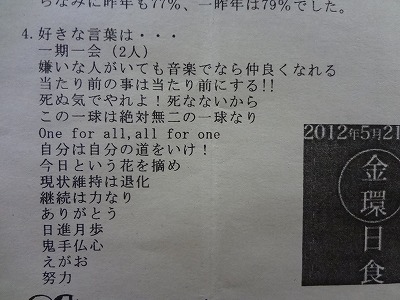 ちなみに昨年も77%、一昨年は79%でした。
4. 好きな言葉は・・・
一期一会（2人）
嫌いな人がいても音楽でなら仲良くなれる
当たり前の事は当たり前にする!!
死ぬ気でやれよ！死なないから
この一球は絶対無二の一球なり
One for all, all for one
自分は自分の道をいけ！
今日という花を摘め
現状維持は退化
継続は力なり
ありがとう
日進月歩
鬼手仏心
えがお
努力
2012年5月21
金環日食